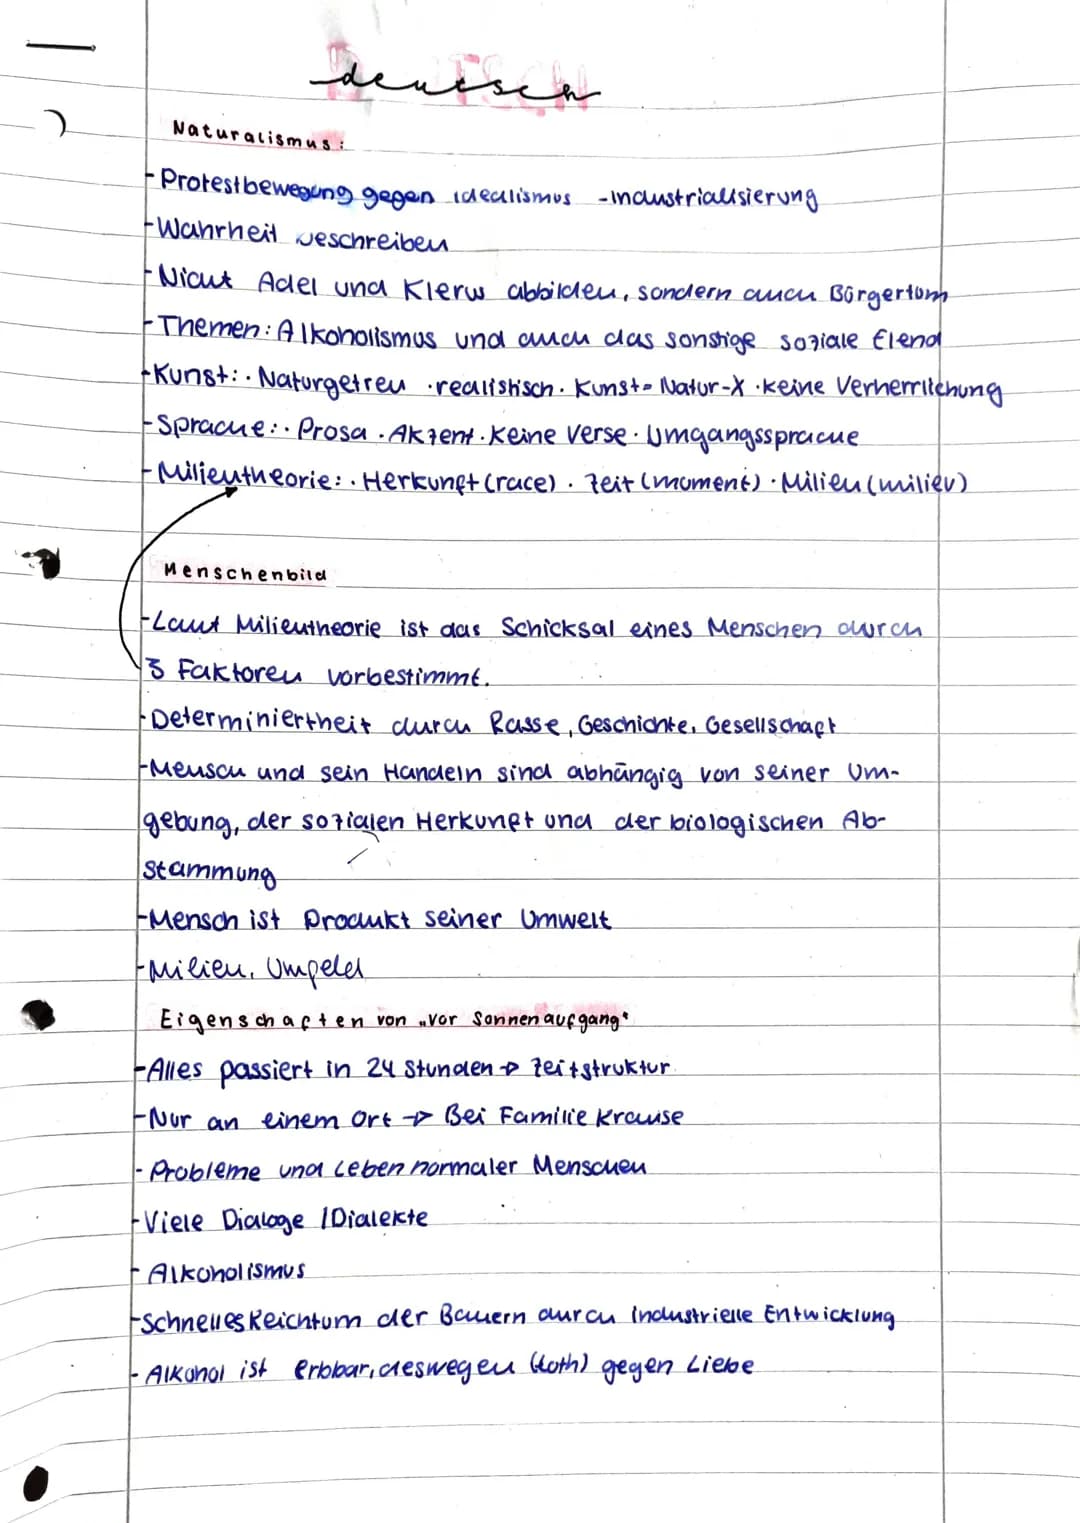 deutsch
Naturalismus:
-Protestbewegung gegen idealismus -industrialisierung
-Wahrheit beschreiben
-Nicht Adel und Klerus abbilden, sondern auch Bürgertum
-Themen: Alkoholismus und auch das sonstige soziale Elend
-Kunst: · Naturgetreu · realistisch · Kunst = Natur-X · keine Verherrlichung
-Sprache: · Prosa · Akzent · Keine Verse · Umgangssprache
-Milieutheorie: · Herkunft (race) · Zeit (moment) · Milieu (milieu)
Menschenbild
-Laut Milieutheorie ist das Schicksal eines Menschen durch
3 Faktoren vorbestimmt.
-Determiniertheit durch Rasse, Geschichte, Gesellschaft
-Mensch und sein Handeln sind abhängig von seiner Um-
gebung, der sozialen Herkunft und der biologischen Ab-
stammung
-Mensch ist Produkt seiner Umwelt
-Milieu, Umfeld
Eigenschaften von „vor Sonnenaufgang"
-Alles passiert in 24 Stunden → Zeitstruktur
-Nur an einem Ort → Bei Familie Krause
-Probleme und Leben normaler Menschen
-Viele Dialoge / Dialekte
-Alkoholismus
-Schnelles Reichtum der Bauern durch industrielle Entwicklung
-Alkohol ist erbbar, deswegen (Loth) gegen Liebe